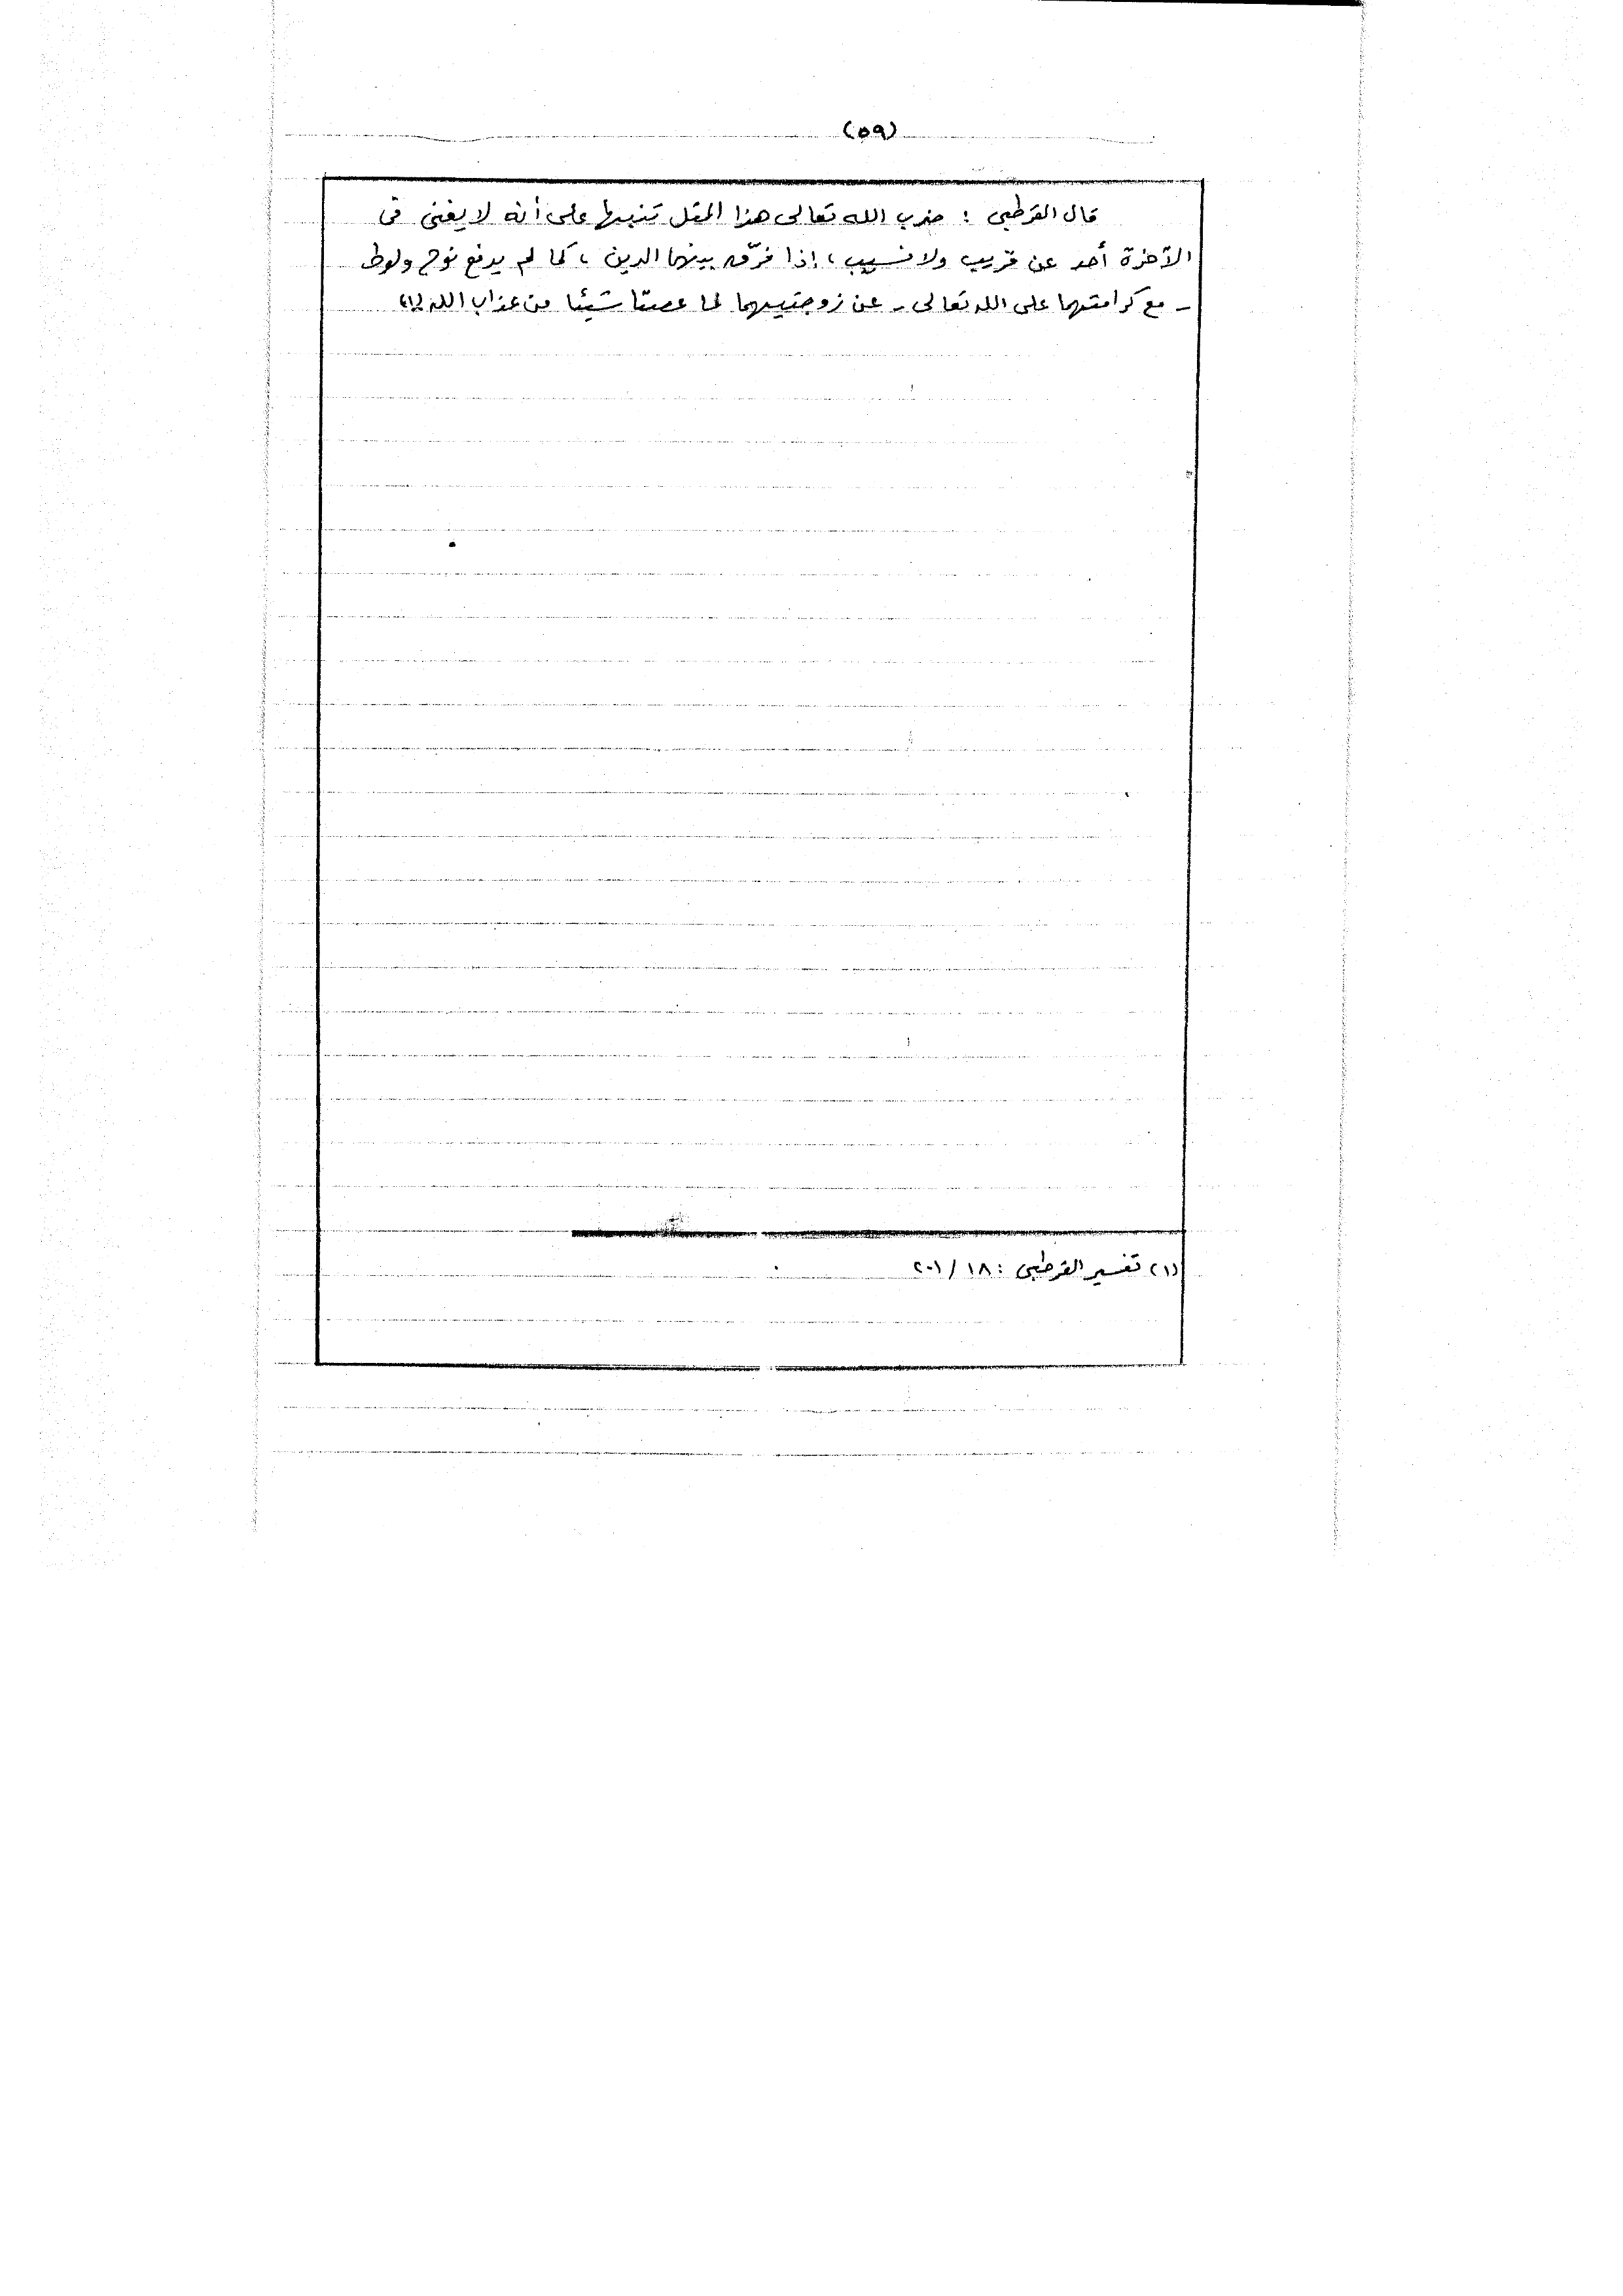 (٥٩)
قال القرطبى : ضرب الله تعالى هذا المثل تنبيها على أنه لا يغنى فى
الآخرة أحد عن قريب ولا نسيب، إذا فرّق بينهما الدين ، كما لم يدفع نوح ولوط
- مع كرامتهما على الله تعالى - عن زوجتيهما لما عصتا شيئا من عذاب الله (١)
(١) تفسير القرطبى : ١٨ / ٢٠١